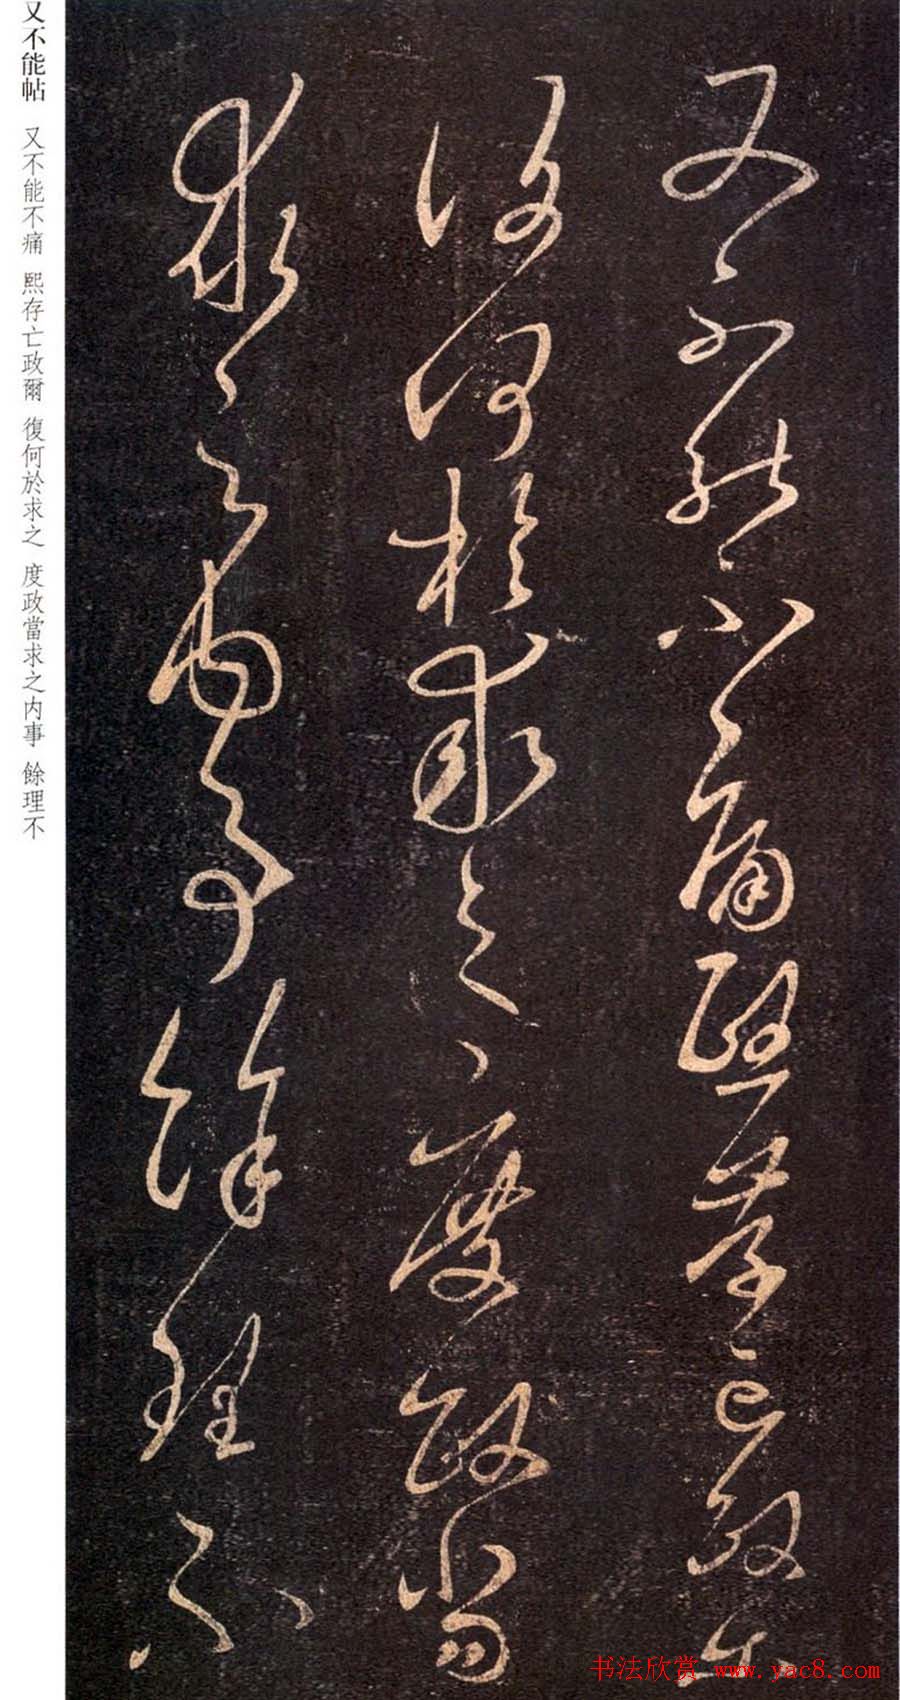 又不能不痛熙存亡政爾
復何於求之度政當
求之内事餘理不
又不能帖 又不能不痛 熙存亡政爾 復何於求之 度政當求之内事 餘理不
书法欣赏 www.yac8.com